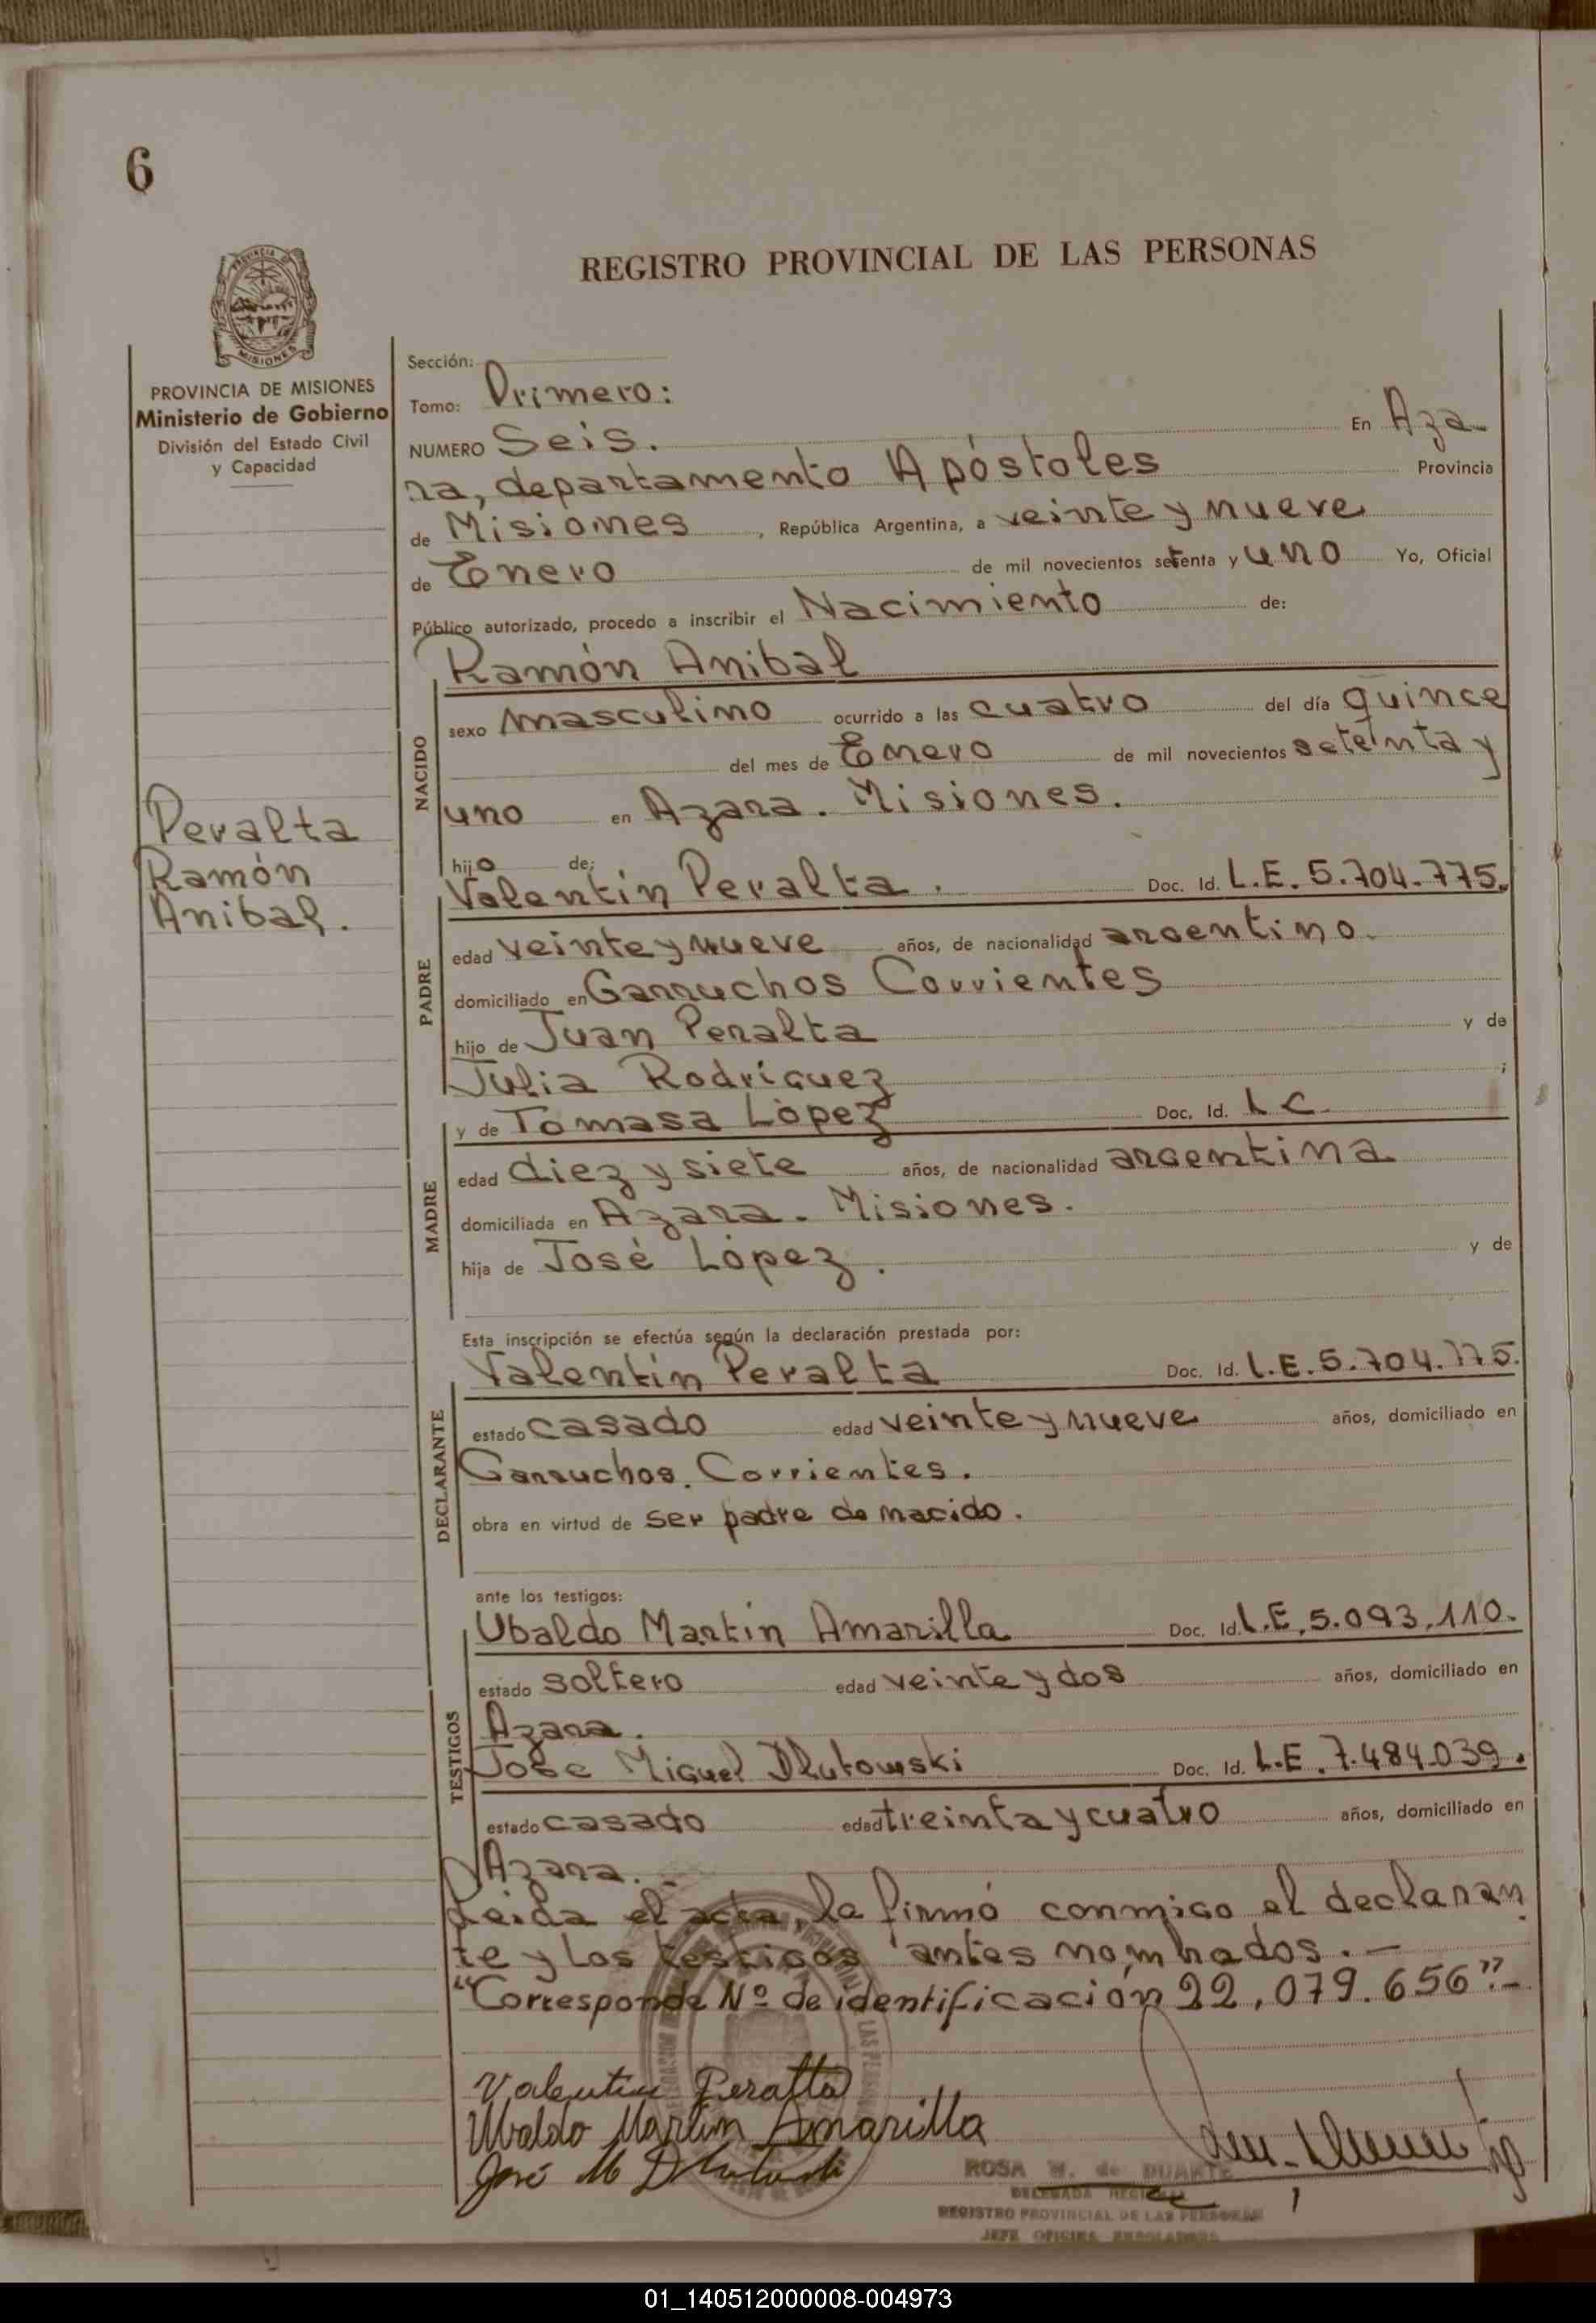 6
REGISTRO PROVINCIAL DE LAS PERSONAS
PROVINCIA DE MISIONES
Ministerio de Gobierno
División del Estado Civil
y Capacidad
Peralta
Ramón
Anibal.
Sección:
Tomo: Primero:
NUMERO Seis. En Aza-
ra, departamento Apóstoles Provincia
de Misiones, República Argentina, a veinte y nueve
de Enero de mil novecientos setenta y uno Yo, Oficial
Público autorizado, procedo a inscribir el Nacimiento de:
Ramón Anibal
NACIDO
sexo masculino ocurrido a las cuatro del día quince
del mes de Enero de mil novecientos setenta y
uno en Azara. Misiones.
hijo de:
Valentín Peralta. Doc. Id. L.E. 5.704.775.
PADRE
edad veinte y nueve años, de nacionalidad argentino.
domiciliado en Garruchos Corrientes
hijo de Juan Peralta y de
Julia Rodríguez ;
y de Tomasa López Doc. Id. L C.
MADRE
edad diez y siete años, de nacionalidad argentina
domiciliada en Azara. Misiones.
hija de José López. y de
Esta inscripción se efectúa según la declaración prestada por:
Valentín Peralta Doc. Id. L.E. 5.704.775.
DECLARANTE
estado casado edad veinte y nueve años, domiciliado en
Garruchos. Corrientes.
obra en virtud de ser padre de nacido.
ante los testigos:
Ubaldo Martín Amarilla Doc. Id. L.E. 5.093.110.
TESTIGOS
estado soltero edad veinte y dos años, domiciliado en
Azara.
Jose Miguel Dlutowski Doc. Id. L.E. 7.484.039.
estado casado edad treinta y cuatro años, domiciliado en
Azara.
Leida el acta, la firmó conmigo el declaran
te y los testigos antes nombrados.-
"Corresponde Nº de identificación 22.079.656".-
Valentin Peralta
Ubaldo Martin Amarilla
José M
ROSA M. de DUARTE
DELEGADA
REGISTRO PROVINCIAL DE LAS PERSONAS
JEFE OFICINA ENROLADORA
01_140512000008-004973